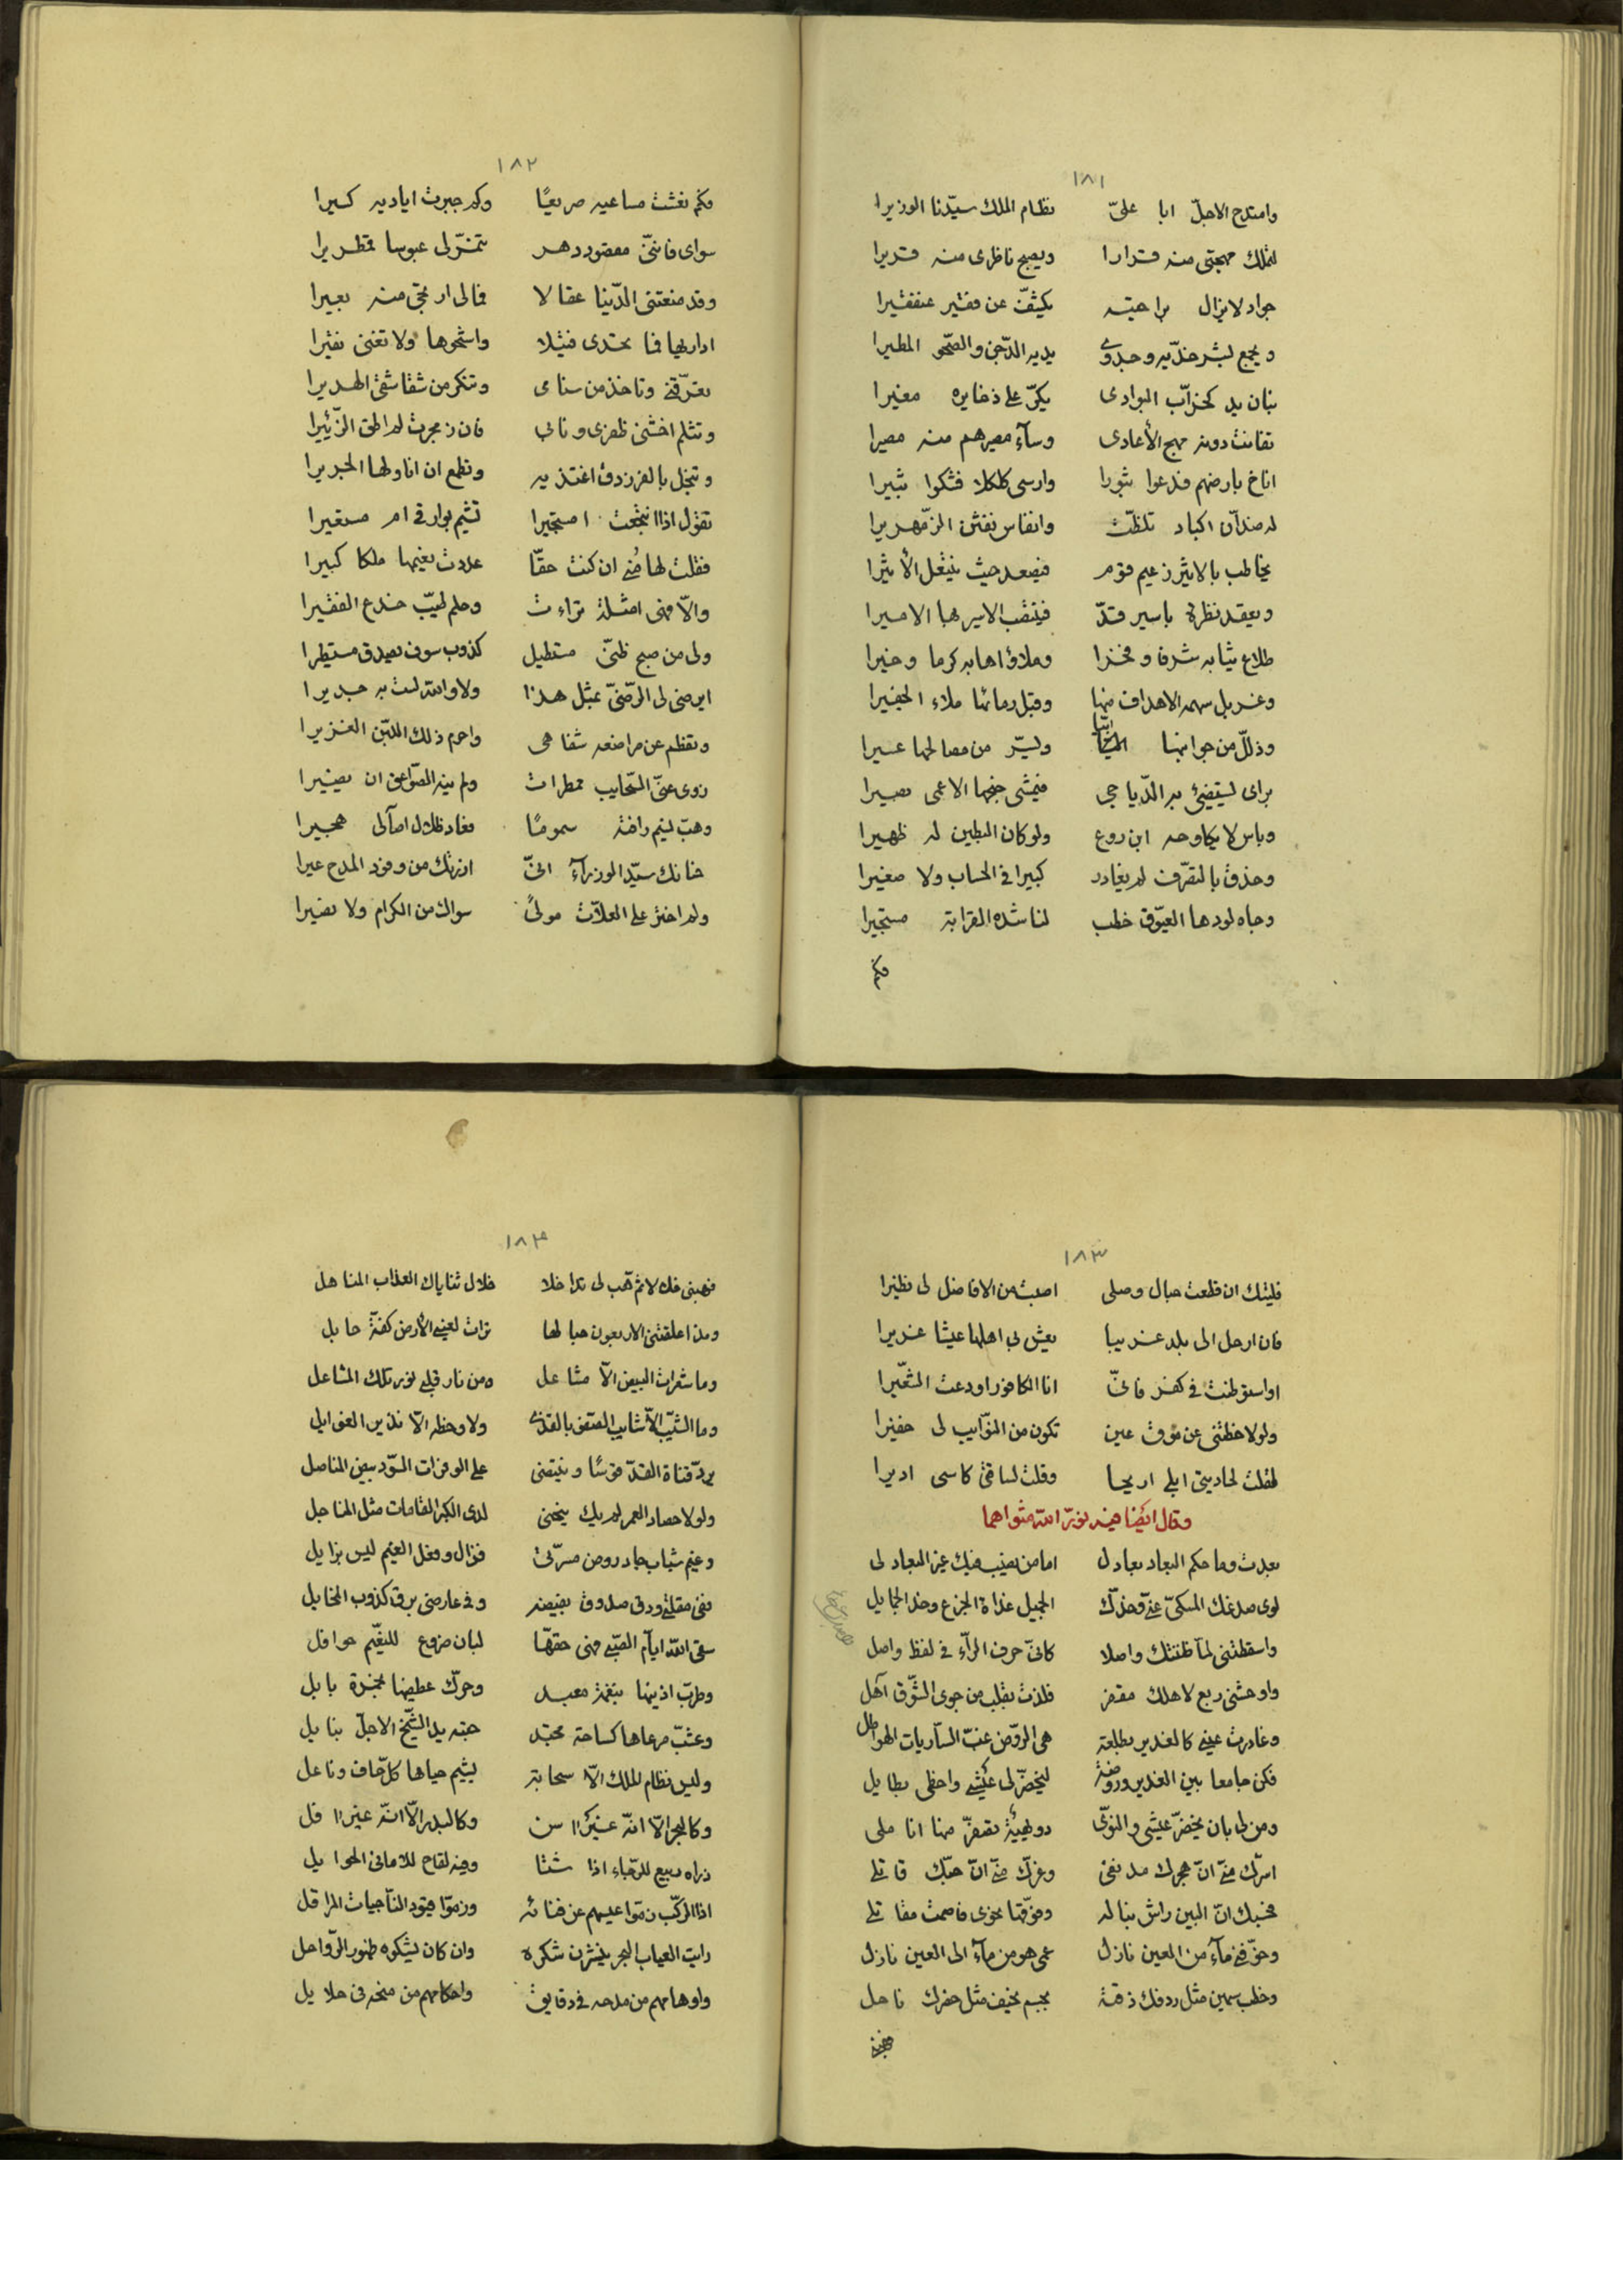 ١٨١
وامتدح الاجلّ ابا علىّ نظام الملك سيّدنا الوزيرا
لتملك مهجتى منه قرارا ويصبح ناظرى منه قريرا
جواد لا يزال براحتيه يكشّف عن فقير عنقفيرا
ويجمع لبشر خدّيه وجدوى يديه الدّجن والصّحو المطيرا
بنان يد كخزّاب البوادى يكرّ على ذخايره مغيرا
تفانت دونه مهج الأعادى وسآء مصيرهم منه مصيرا
اناخ بارضهم فدعوا ثبورا وارسى كلكلا فشكوا ثبيرا
له ضدّان اكباد تلظّت وانفاس نفثن الزّمهريرا
يخاطب بالاثير زعيم قوم فيصعد حيث ينتعل الأثيرا
ويعقد نظرة باسير قدّ فينقب الاسير بها الاميرا
طلاع ثيابه شرفا وفخرا وملاؤ اهابه كرما وخيرا
وغربل سهمه الاهداف منها وقبل رمائنا ملاء الجفيرا
وذلّل من جوانبها ويسّر من مصالحها عسيرا
براى يستضئ به الدّياجى فيمشى جنحها الاعمى بصيرا
وباس لا يكاوحه ابن روع ولو كان البطين له ظهيرا
وحذق بالتصرّف لم يغادر كبيرا فى الحساب ولا صغيرا
وجاه لو دها العيّوق خطب لناشده القرابة مستجيرا
فكم
١٨٢
فكم نعشت مساعيه صريعًا وكم جبرت اياديه كسيرا
سواى فانّنى مقصود دهر تنمّر لى عبوسا قمطريرا
وقد منعتنى الدّنيا عقالا فمالى ارتجى منه بعيرا
اداريها فما تجدى فتيلا واشجوها ولا تغنى نقيرا
تعرّقنى وتاخذ من سنامى وتنكر من شقاشقى الهديرا
وتثلم اخشنى ظفرى ونابى فان زمجرت لم اطق الزّئيرا
وتبخل بالفرزدق اغتذيه وتطمع ان اناولها الجريرا
تقول اذا انتجعت امستجيرا تشيم بوارقى ام مستعيرا
فقلت لها مُنى ان كنت حقّا عددت نعيمها ملكا كبيرا
والّا فهى امثلة تراءت وحلم طيّب خدع الفقيرا
ولى من صبح ظنّى مستطيل كذوب سوف يصدق مستطيرا
ايرضى لى الرّضىّ بمثل هذا ولا والله لست به جديرا
وتفطم عن مراضعه شفاهى واحرم ذلك اللبّن الغزيرا
زوى عنّى السّحايب ممطرات ولم ينه الصّواعق ان تصيرا
وهبّ نسيم رافته سمومًا فعاد ظلال آصالى هجيرا
حنانك سيّد الوزرآء انّى ازرتك من وفود المدح عيرا
ولم اختر على العلاّت مولىً سواك من الكرام ولا نصيرا
١٨٣
فليتك ان قطعت حبال وصلى اصبت من الافاضل لى نظيرا
فان ارحل الى بلد غريبا يعش بى اهلها عيشا غزيرا
او استوطنت فى كفر فانّى انا الكافور اودعت الشّعيرا
ولولا حظتنى عن موق عين تكون من النّوايب لى خفيرا
لقلت لحاديتى ابلى اريحا وقلت لساقى كاسى اديرا
وقال ايضا فيه نوّر الله مثواهما
بعدت وما حكم البعاد بعادل اما من نصيب فيك غير البعاد لى
لوى صدغك المسكىّ عنّى وخدّك الجميل غداة الجزع وخد الجمايل
واسقطتنى لمآ ظننتك واصلا كانّى حرف الرآء فى لفظ واصل
واوحشنى ربع لاهلك مقفر فلذت بقلب من جوى الشّوق آهل
وغادرت عينى كالغدير بطلعة هى الرّوض عبّ السّاريات الهواطل
فكن جامعا بين الغدير وروضة ليخضرّ لى عيشى واحظى بطايل
ومن لى بان يخضرّ عيشى والنّوى دويهيّة تصفرّ منها اناملى
اسرّك منّى انّ هجرك مدنفى وغرّك منّى انّ حبّك قاتلى
فحسبك انّ البين راش نباله وفوّقها نحوى فاصمت مقاتلى
وحوّفنى مآء من العين نازل عمى هو من مآء الى العين نازل
وخطب سمين مثل ردفك ذقته بجسم نحيف مثل خصرك ناحل
فهبنى
١٨٤
فهبنى فك لا ثمّ هب لى تداخلا خلال ثناياك العذاب المناهل
ومذ اعلقتنى الاربعون حبالها ترات لعينى الأرض كفّة حابل
وما شعرات البيض الّا مشاعل ومن نار قلبى نور تلك المشاعل
وما الشّيب الّا شايب الصّفو بالقذى ولا وخطه الّا نذير الغوايل
يردّ قناة القدّ قوسًا وينتضى على الوفرات السّود بيض المناصل
ولولا حصاد العمر لم يك ينحنى لدى الكبر القامات مثل المناجل
وغيم شباب جاد روض مسرّتى فزال وفعل الغيم ليس بزايل
ففى مقلتى ودق صدوق بفيضه وفى عارضى برق كذوب المخايل
سقى الله ايّام الصّبى فهى حقّها لبان ضروع للنعّيم حوافل
وطرّب اذنيها بنغمة معبد وحرّك عطفيها بخمرة بابل
وعشّب مرعاها كساحة مجتد حبته يد الشّيخ الاجلّ بنايل
وليس نظام الملك الّا سحابة يشيم حياها كلّ حاف وناعل
وكالبحر الّا انّه غير آسن وكالبدر الّا انّه غير آفل
ذراه ربيع للرّجاء اذا شتا وفيه لقاح للامانى الحوايل
اذا الرّكب زمّوا عيسهم عن فنائه وزمّوا قيود النّاجيات المراقل
رايت العياب البجر ينشرن شكره وان كان يشكوه ظهور الرّواحل
واوهامهم من مدحه فى دقايق واحكامهم من منحه فى جلايل